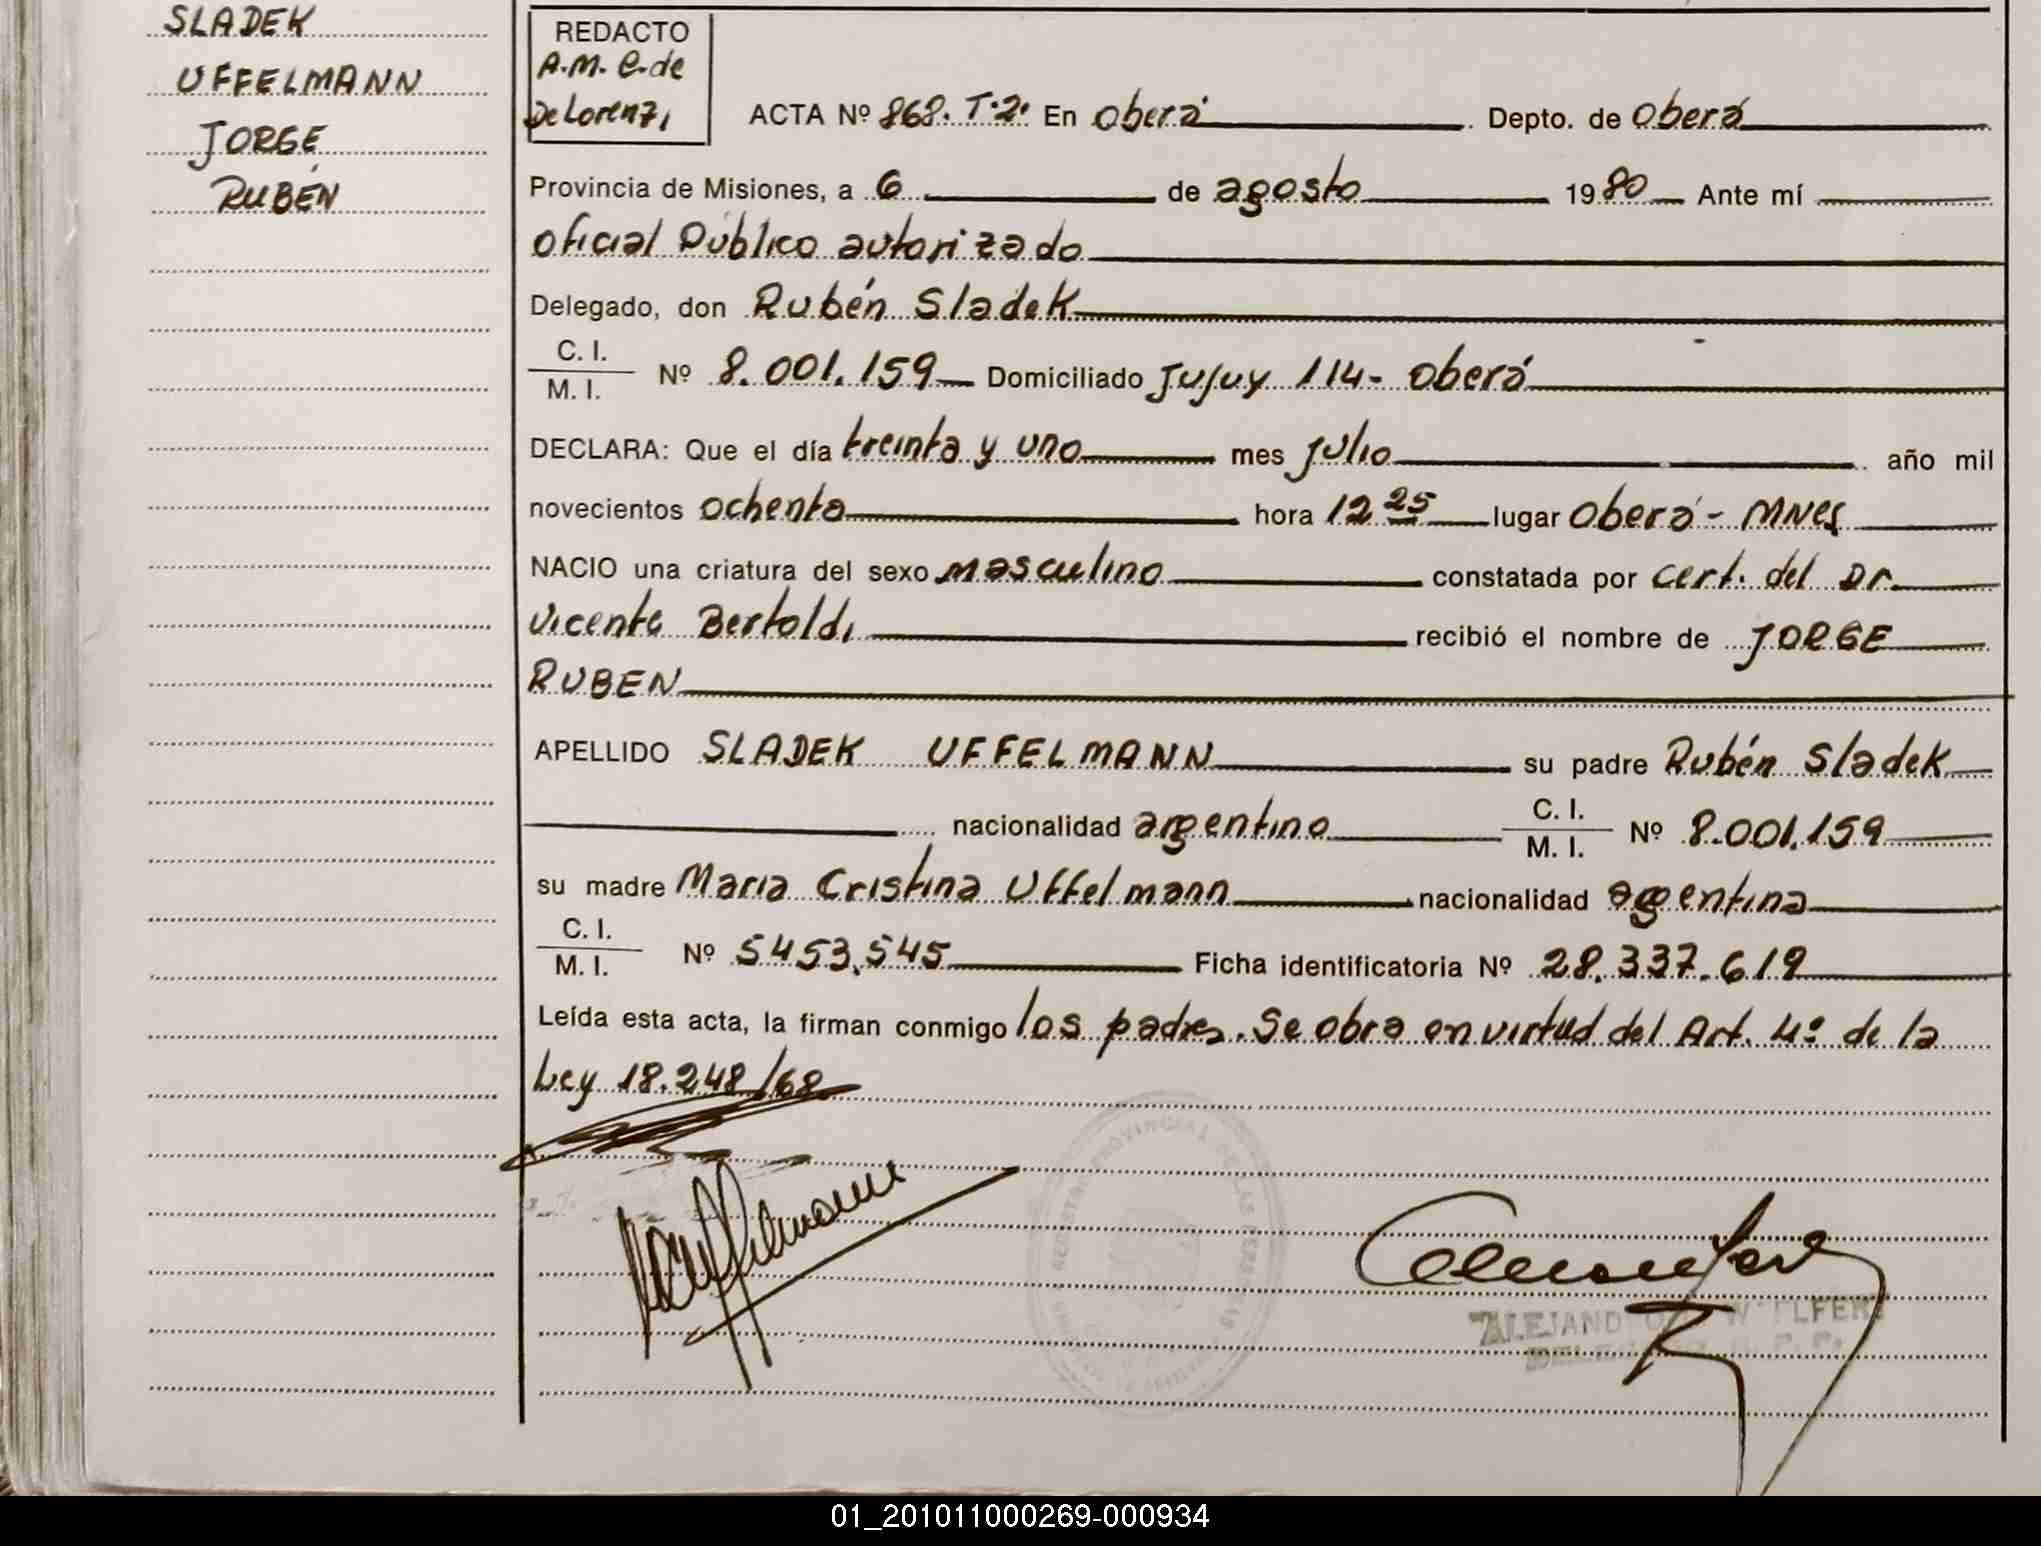 SLADEK
UFFELMANN
JORGE
RUBÉN
REDACTO
A.M. C. de
De Lorenzi
ACTA Nº 868. T.2. En Oberá Depto. de Oberá
Provincia de Misiones, a 6 de agosto 1980 Ante mí
Oficial Público autorizado
Delegado, don Rubén Sladek
C. I.
M. I. Nº 8.001.159 Domiciliado Jujuy 114- Oberá
DECLARA: Que el día treinta y uno mes julio año mil
novecientos ochenta hora 12 25 lugar Oberá - Mnes
NACIO una criatura del sexo masculino constatada por cert. del Dr.
Vicente Bertoldi recibió el nombre de JORGE
RUBEN
APELLIDO SLADEK UFFELMANN su padre Rubén Sladek
nacionalidad argentino C. I.
M. I. Nº 8.001.159
su madre Maria Cristina Uffelmann nacionalidad argentina
C. I.
M. I. Nº 5453.545 Ficha identificatoria Nº 28.337.619
Leída esta acta, la firman conmigo los padres. Se obra en virtud del Art. 4º de la
Ley 18.248/68
01_201011000269-000934